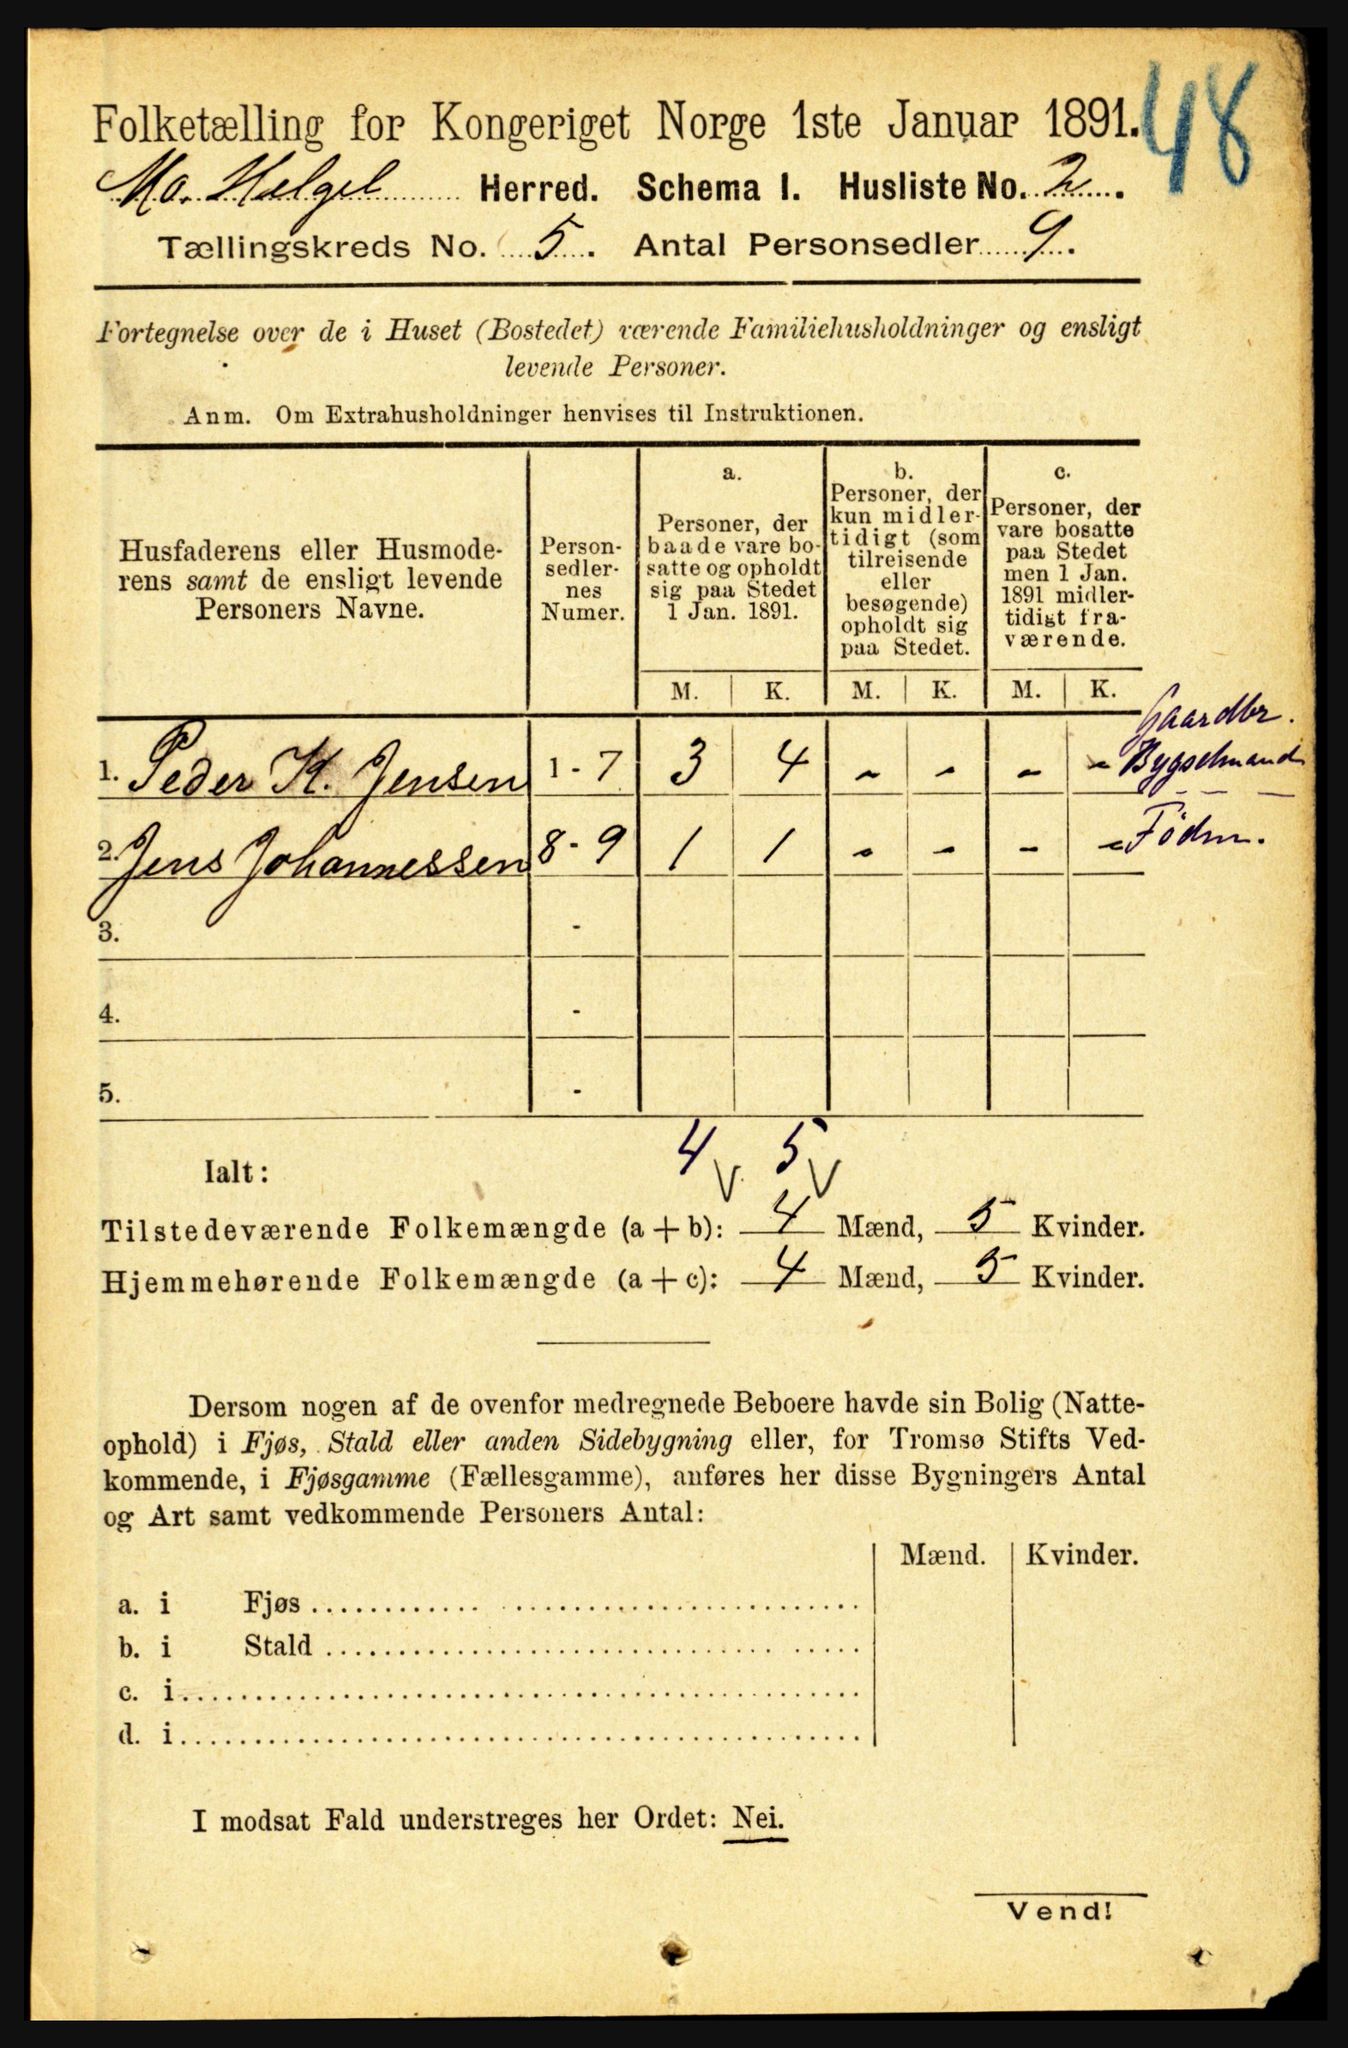 48
Folketælling for Kongeriget Norge 1ste Januar 1891.
Mo. Helgel Herred. Schema I. Husliste No. 2.
Tællingskreds No. 5. Antal Personsedler 9.
Fortegnelse over de i Huset (Bostedet) værende Familiehusholdninger og ensligt
levende Personer.
Anm. Om Extrahusholdninger henvises til Instruktionen.
Husfaderens eller Husmode-
rens samt de ensligt levende
Personers Navne.
Person-
sedler-
nes
Numer.
a.
Personer, der
baade vare bo-
satte og opholdt
sig paa Stedet
1 Jan. 1891.
b.
Personer, der
kun midler-
tidigt (som
tilreisende
eller
besøgende)
opholdt sig
paa Stedet.
c.
Personer, der
vare bosatte
paa Stedet
men 1 Jan.
1891 midler-
tidigt fra-
værende.
M. K. M. K. M. K.
Gaardbr.
1. Peder K. Jensen 1 - 7 3 4 - - - - Bygselmand
2. Jens Johannessen 8 - 9 1 1 - - - - Födm.
3. -
4. -
5. -
Ialt: 4 5
Tilstedeværende Folkemængde (a + b): 4 Mænd, 5 Kvinder.
Hjemmehørende Folkemængde (a + c): 4 Mænd, 5 Kvinder.
Dersom nogen af de ovenfor medregnede Beboere havde sin Bolig (Natte-
ophold) i Fjøs, Stald eller anden Sidebygning eller, for Tromsø Stifts Ved-
kommende, i Fjøsgamme (Fællesgamme), anføres her disse Bygningers Antal
og Art samt vedkommende Personers Antal:
Mænd. Kvinder.
a. i Fjøs
b. i Stald
c. i
d. i
I modsat Fald understreges her Ordet: Nei.
Vend!